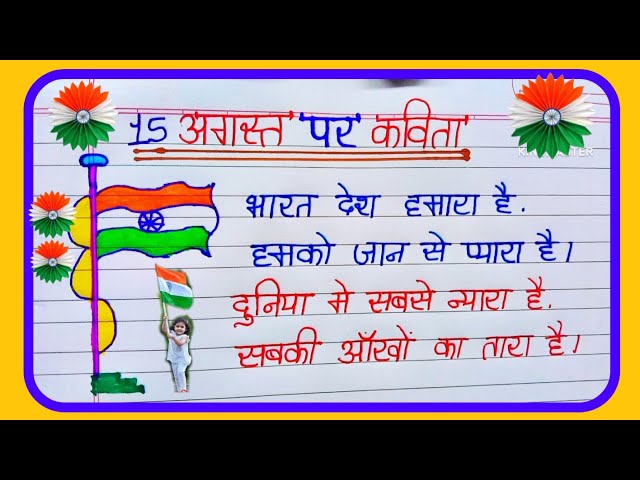 15 अगस्त पर कविता
भारत देश हमारा है.
हमको जान से प्यारा है।
दुनिया मे सबसे न्यारा है.
सबकी आँखों का तारा है।